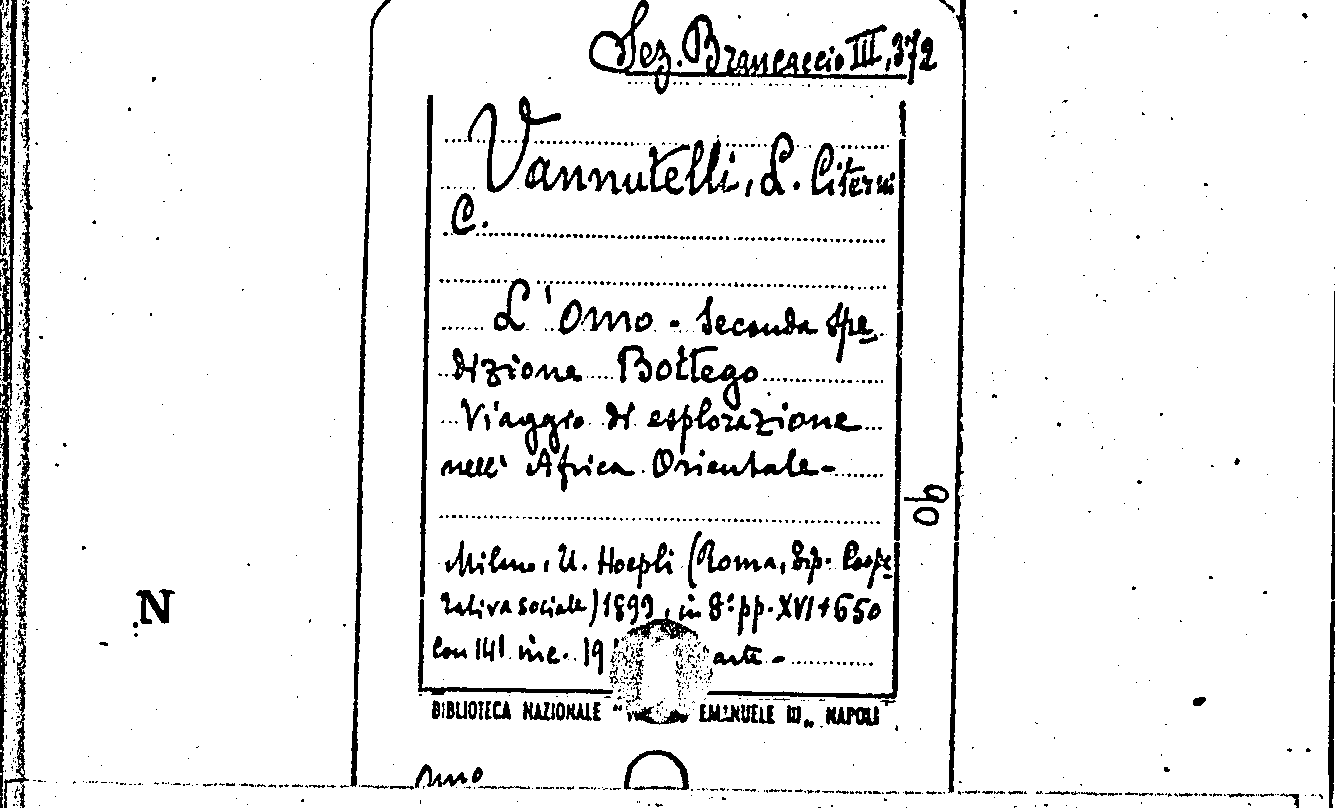 Sez. Brancaccio III, 372
Vannutelli, L. Citerni
C.
L'Omo - Seconda Spe
dizione Bottego
Viaggio di esplorazione
nell' Africa Orientale -
Milano, U. Hoepli (Roma, tip. Coope
rativa sociale) 1899, in 8° pp. XVI+650
con 141 inc. 19
BIBLIOTECA NAZIONALE " EMANUELE III„ NAPOLI
N